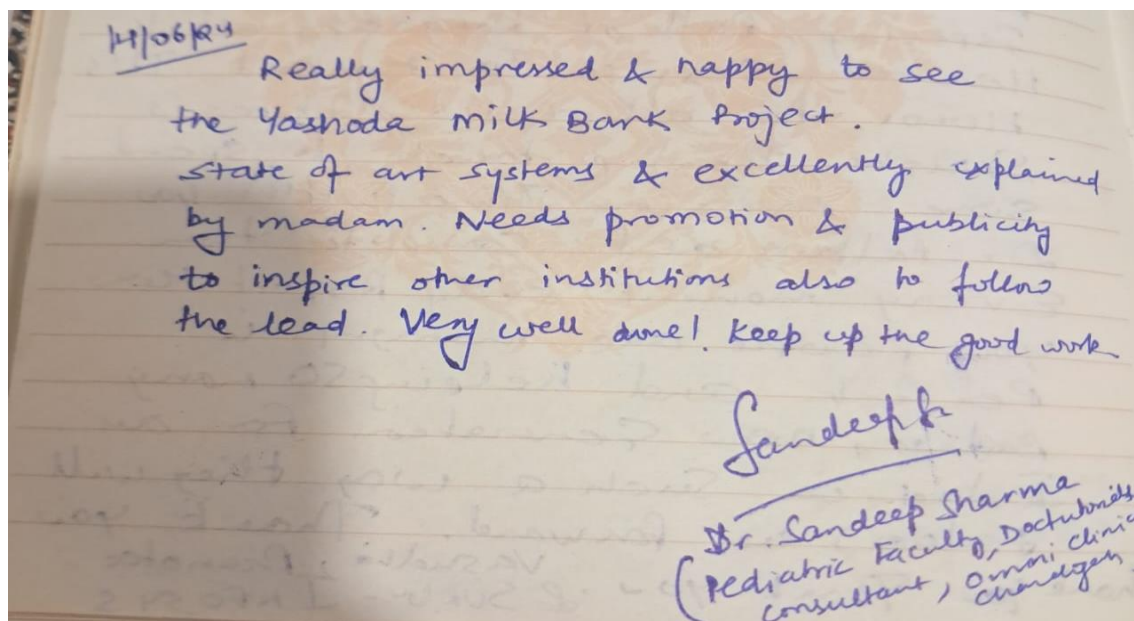 14/06/24
Really impressed & happy to see
the Yashoda Milk Bank Project.
State of art systems & excellently explained
by madam. Needs promotion & publicity
to inspire other institutions also to follow
the lead. Very well done! Keep up the good work
Sandeep S
Dr. Sandeep Sharma
(Pediatric Faculty, Doctutorials
Consultant, Omni Clinic
Chandigarh